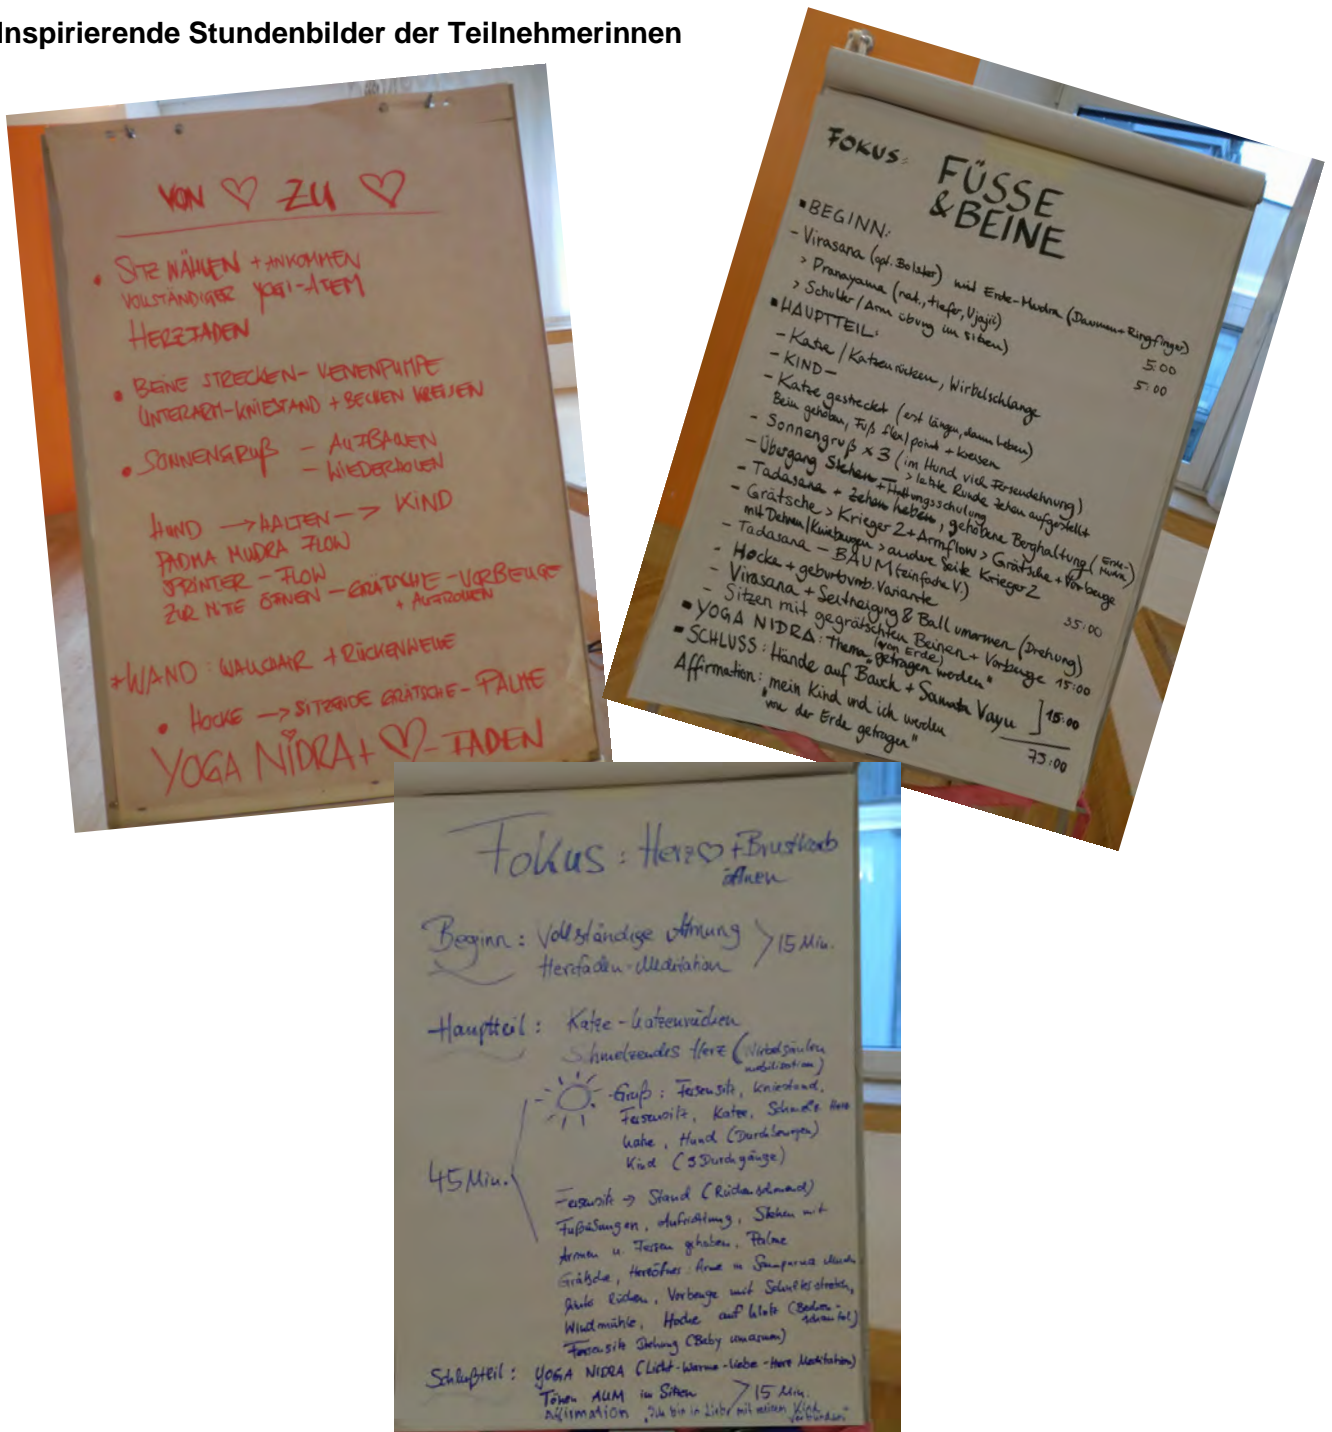 Inspirierende Stundenbilder der Teilnehmerinnen
VON ♡ ZU ♡
• SITZ WÄHLEN + ANKOMMEN
VOLLSTÄNDIGER YOGI-ATEM
HERZFADEN
• BEINE STRECKEN - VENENPUMPE
UNTERARM-KNIESTAND + BECKEN KREISEN
• SONNENGRUß - AUFBAUEN
- WIEDERHOLEN
HUND → HALTEN → KIND
PADMA MUDRA FLOW
SPRINTER - FLOW
ZUR MITE ÖFNEN - GRÄTSCHE - VORBEUGE
+ AUFROLLEN
WAND: WALLCHAIR + RÜCKENWELLE
• HOCKE → SITZENDE GRÄTSCHE - PALME
YOGA NIDRA + ♡-FADEN
FOKUS: FÜSSE
& BEINE
▪ BEGINN:
- Virasana (opt. Bolster) mit Erde-Mudra (Daumen+Ringfinger)
> Pranayama (nat., tiefer, Ujajii) 5:00
> Schulter/Arm übung im sitzen) 5:00
▪ HAUPTTEIL:
- Katze / Katzenrücken, Wirbelschlange
- KIND -
- Katze gestreckt (erst längen, dann heben)
Bein gehoben, Fuß flex/point + kreisen
- Sonnengruß x 3 (im Hund viel Fersendehnung)
> letzte Runde Zehen aufgestellt
- Übergang Stehen + Haltungsschulung
- Tadasana + Zehen heben, gehobene Berghaltung (Erde-Mudra)
- Grätsche > Krieger 2 + Armflow > Grätsche + Vorbeuge
mit Dehnen/Kniebeugen > andere Seite Krieger 2
- Tadasana - BAUM (einfache V.)
- Hocke + geburtsvorb. Variante 35:00
- Virasana + Seitneigung & Ball umarmen (Drehung)
- Sitzen mit gegrätschten Beinen + Vorbeuge
▪ YOGA NIDRA: Thema "(von Erde) getragen werden" 15:00
▪ SCHLUSS: Hände auf Bauch + Samata Vayu
Affirmation: mein Kind und ich werden ] 15:00
"von der Erde getragen"
75:00
Fokus: Herz♡ + Brustkorb
öffnen
Beginn: Vollständige Atmung > 15 Min.
Herzfaden-Meditation
Hauptteil: Katze - Katzenrücken
Schmelzendes Herz (Wirbelsäulen
mobilisation)
-Gruß: Fersensitz, Kniestand,
Fersensitz, Katze, Schmelz Herz
Katze, Hund (Durchbewegen)
Kind (3 Durchgänge)
45 Min.
Fersensitz → Stand (Rücken schmal)
Fußübungen, Aufrichtung, Stehen mit
Armen u. Fersen gehoben, Palme
Grätsche, Herzöffner: Arme in
Rücken, Vorbeuge mit Schulterstretch,
Windmühle, Hocke auf Klotz (Becken-
schaukel)
Fersensitz Drehung (Baby umarmen)
Schlußteil: YOGA NIDRA (Licht-Wärme-Liebe-Herz Meditation)
Tönen AUM im Sitzen > 15 Min.
Affirmation "Ich bin in Liebe mit meinem Kind
verbunden"